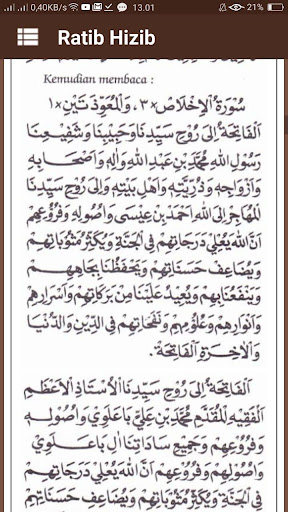 0,40KB/s 13.01 21%
Ratib Hizib
Kemudian membaca :
سُوْرَةُ اْلاِخْلَاصِ ×٣، وَالْمُعَوِّذَتَيْنِ ×١
اَلْفَاتِحَةُ إِلَى رُوْحِ سَيِّدِنَا وَحَبِيْبِنَا وَشَفِيْعِنَا
رَسُوْلِ اللهِ مُحَمَّدِ بْنِ عَبْدِ اللهِ وَاٰلِهِ وَاَصْحَابِهِ
وَاَزْوَاجِهِ وَذُرِّيَّتِهِ وَاَهْلِ بَيْتِهِ وَاِلَى رُوْحِ سَيِّدِنَا
الْمُهَاجِرِ اِلَى اللهِ اَحْمَدَ بْنِ عِيْسَى وَاُصُوْلِهِ وَفُرُوْعِهِمْ
اَنَّ اللهَ يُعْلِي دَرَجَاتِهِمْ فِي الْجَنَّةِ وَيُكَثِّرُ مَثُوْبَاتِهِمْ
وَيُضَاعِفُ حَسَنَاتِهِمْ وَيَحْفَظُنَا بِجَاهِهِمْ
وَيَنْفَعُنَابِهِمْ وَيُعِيْدُ عَلَيْنَا مِنْ بَرَكَاتِهِمْ وَاَسْرَارِهِمْ
وَاَنْوَارِهِمْ وَعُلُوْمِهِمْ وَنَفَحَاتِهِمْ فِي الدِّيْنِ وَالدُّنْيَا
وَاْلاٰخِرَةِ اَلْفَاتِحَةْ.
اَلْفَاتِحَةُ إِلَى رُوْحِ سَيِّدِنَا اْلاُسْتَاذِ اْلاَعْظَمِ
اَلْفَقِيْهِ الْمُقَدَّمِ مُحَمَّدِ بْنِ عَلِيِّ بَاعَلَوِيْ وَاُصُوْلِهِ
وَفُرُوْعِهِمْ وَجَمِيْعِ سَادَاتِنَا اٰلِ بَاعَلَوِيْ
وَاُصُوْلِهِمْ وَفُرُوْعِهِمْ اَنَّ اللهَ يُعْلِي دَرَجَاتِهِمْ
فِي الْجَنَّةِ وَيُكَثِّرُ مَثُوْبَاتِهِمْ وَيُضَاعِفُ حَسَنَاتِهِمْ